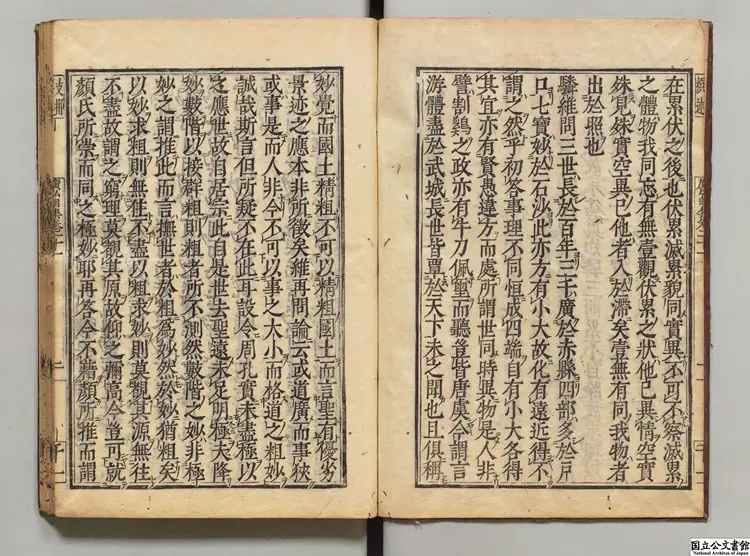 在累伏之後也伏累滅累貌同實異不可不察滅累
之體物我同忘有無壹觀伏累之狀他己異情空實
殊見殊實空異己他者入於滯矣壹無有同我物者
出於照也
驎維問三世長於百年三千廣於赤縣四部多於戶
口七寶妙於石沙此亦方有小大故化有遠近得不
謂之然乎初答事理不同恒成四端自有小大各得
其宜亦有賢愚違方而處所謂世同時異物是人非
譬割雞之政亦有牛刀佩璽而聽豈皆唐虞今謂言
游體盡於武城長世皆覃於天下未之聞也且俱稱
妙覺而國土精粗不可以精粗國土而言聖有優劣
景迹之應本非所徵矣維再問論云或道廣而事狹
或事是而人非今不可以事之大小而格道之粗妙
誠哉斯言但所疑不在此耳設今周孔實未盡極以
之應世故自居宗此自是世去聖遠未足明極夫降
妙數階以接群粗則粗者所不測然數階之妙非極
妙之謂推此而言撫世者於粗爲妙然於妙猶粗矣
以妙求粗則無往不盡以粗求妙則莫覩其源無往
不盡故謂之窮理莫覩其原故仰之彌高今豈可就
顏氏所崇而同之極妙耶再答今不藉顏所推而謂
国立公文書館
National Archives of Japan